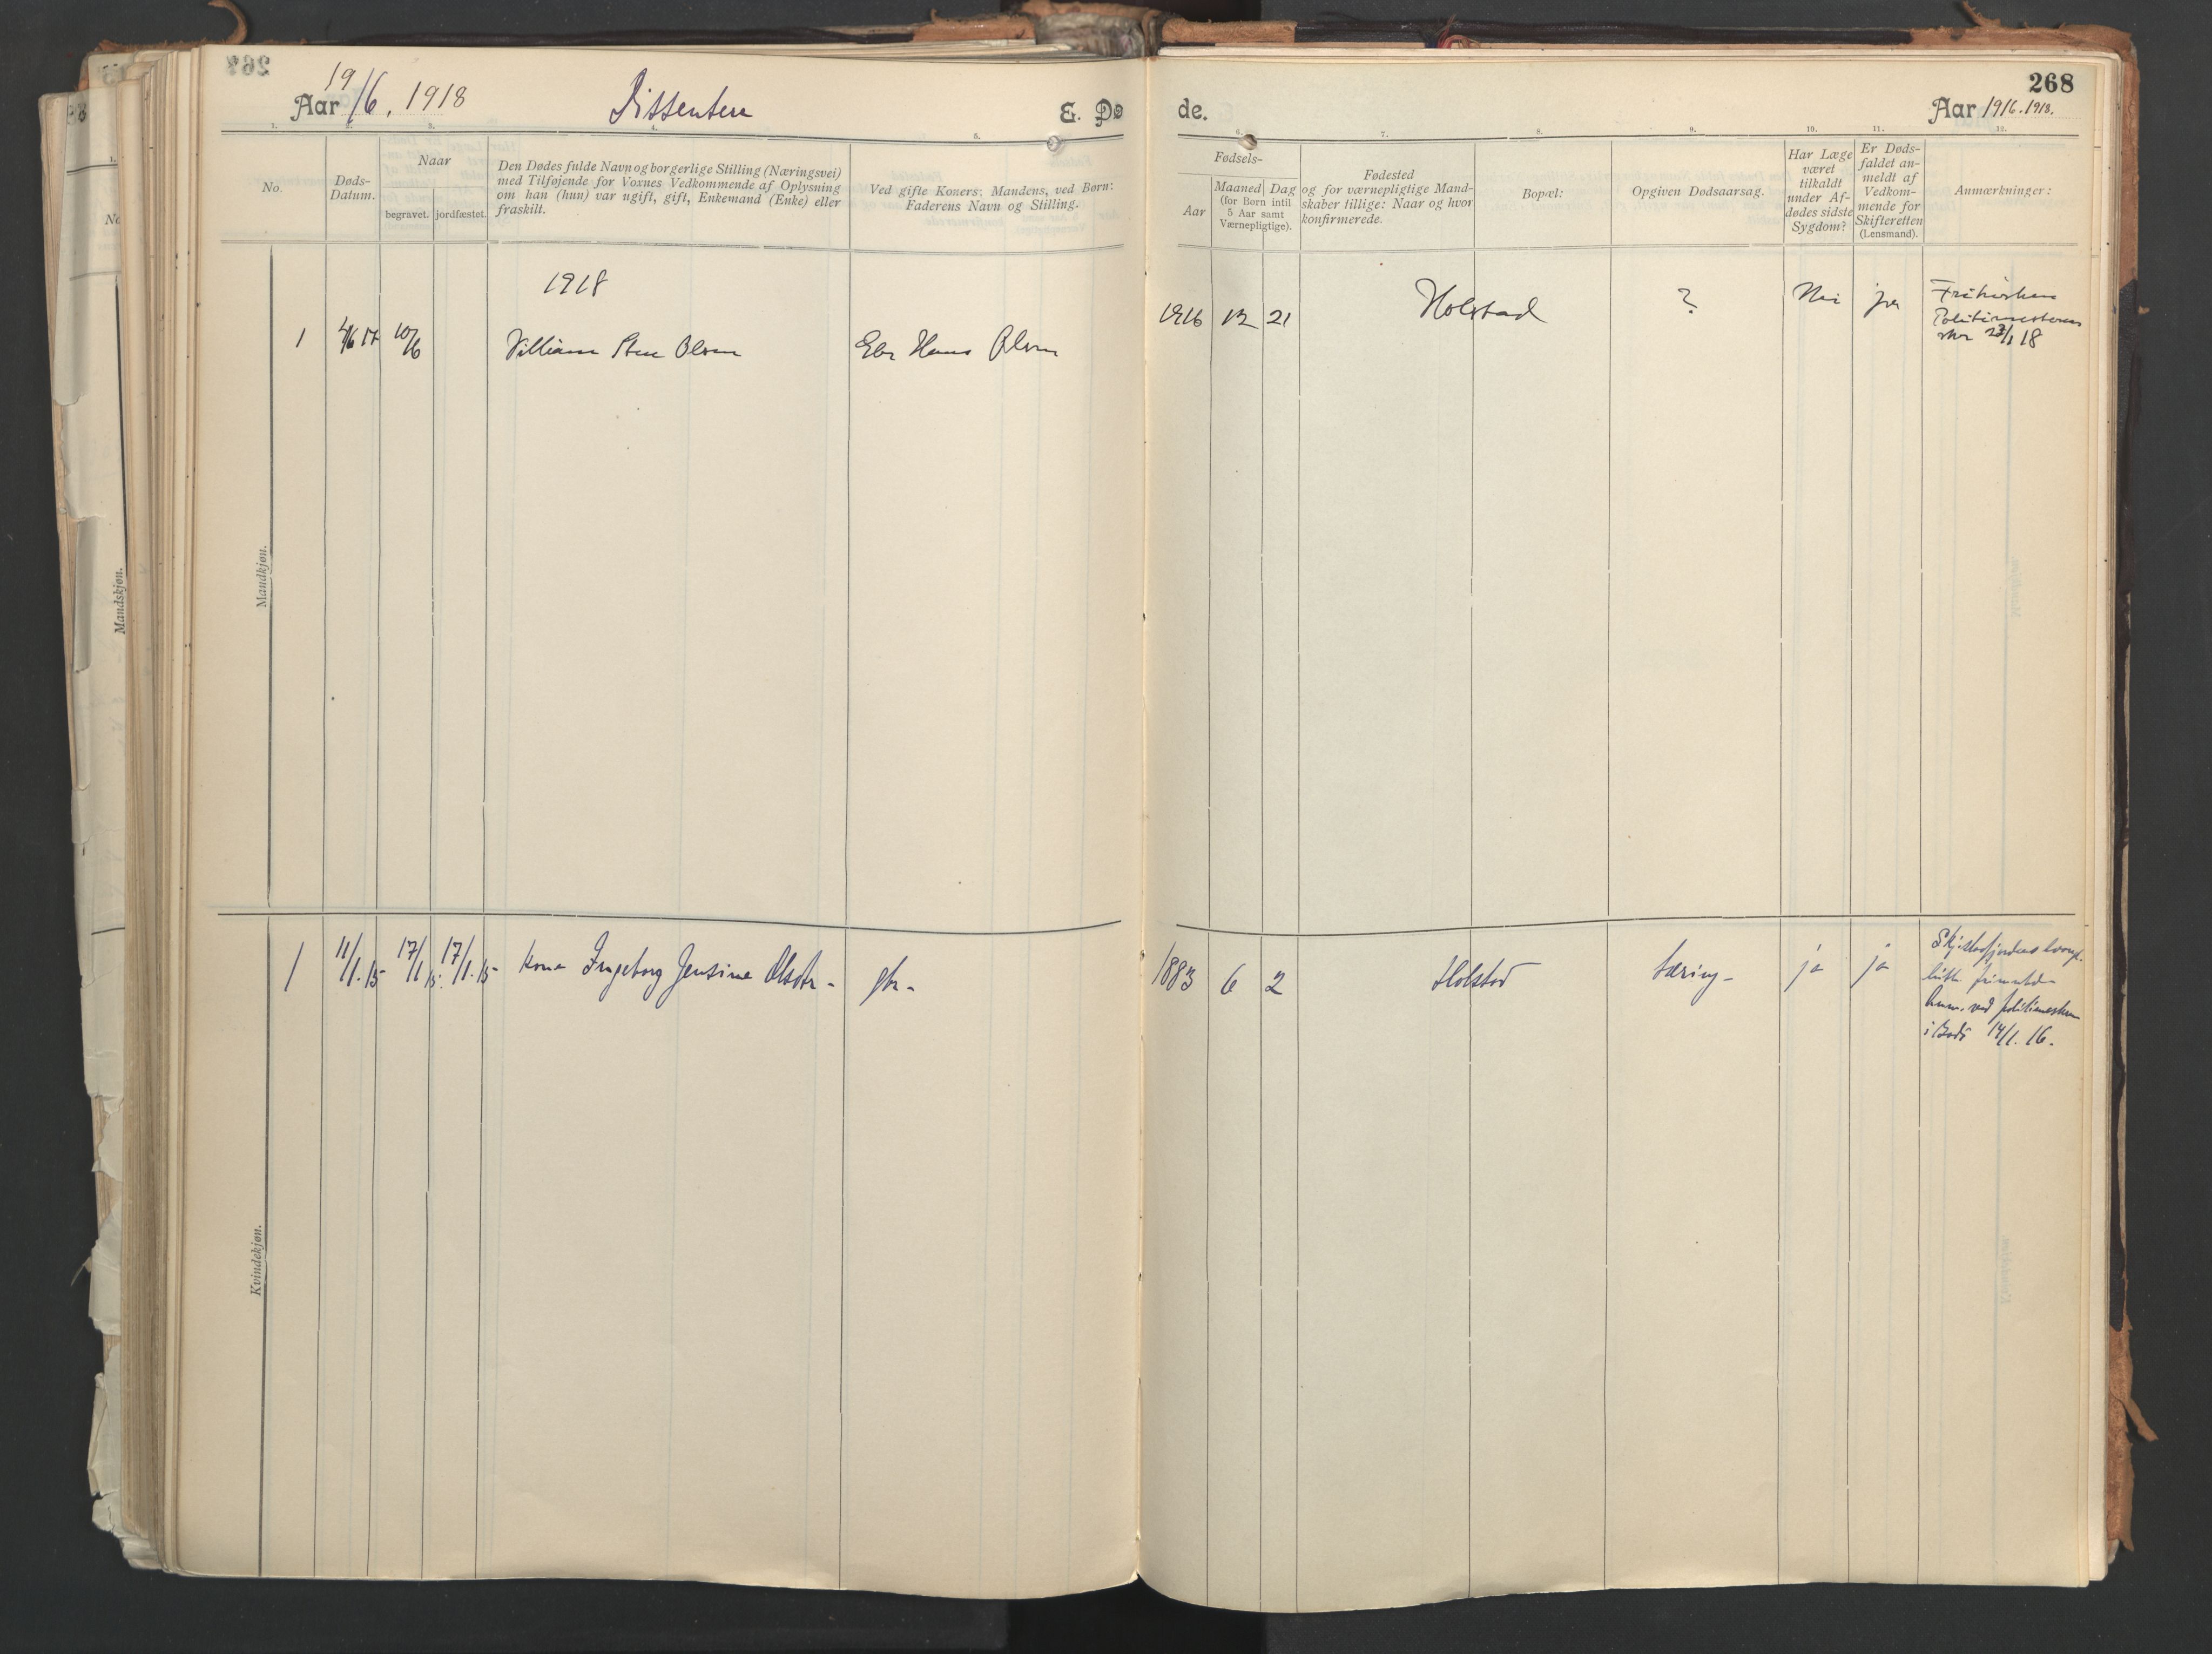 Aar 19/6. 1918
Dissentere
E. Dø
de.
268
Aar 1916. 1918.
1.
2.
3.
4.
5.
6.
7.
8.
9.
10.
11.
12.
No.
Døds-
Datum.
Naar
begravet.
jordfæstet.
Den Dødes fulde Navn og borgerlige Stilling (Næringsvei)
med Tilføjende for Voxnes Vedkommende af Oplysning
om han (hun) var ugift, gift, Enkemand (Enke) eller
fraskilt.
Ved gifte Koners: Mandens, ved Børn:
Faderens Navn og Stilling.
Fødsels-
Aar
Maaned
Dag
(for Børn intil
5 Aar samt
Værnepligtige).
Fødested
og for værnepligtige Mand-
skaber tillige: Naar og hvor
konfirmerede.
Bopæl:
Opgiven Dødsaarsag.
Har Læge
været
tilkaldt
under Af-
dødes sidste
Sygdom?
Er Døds-
faldet an-
meldt af
Vedkom-
mende for
Skifteretten
(Lensmand).
Anmærkninger:
Mandkjøn.
1918
1
4/6 17
10/6
William Olsen
Hans Olsen
1916
12
21
Holstad
?
Nei
ja
Frikirken
Politimesterens
skr 23/1 18
Kvindekjøn.
1
11/1.15
17/1 15.
17/1.15
Kone Ingeborg Jensine Olsdtr -
1883
6
2
Holstad
Tæring -
ja
ja
luth. frimenigh.
Anm. ved politimesteren
i Bodø 14/1. 16.
Mandskjøn.